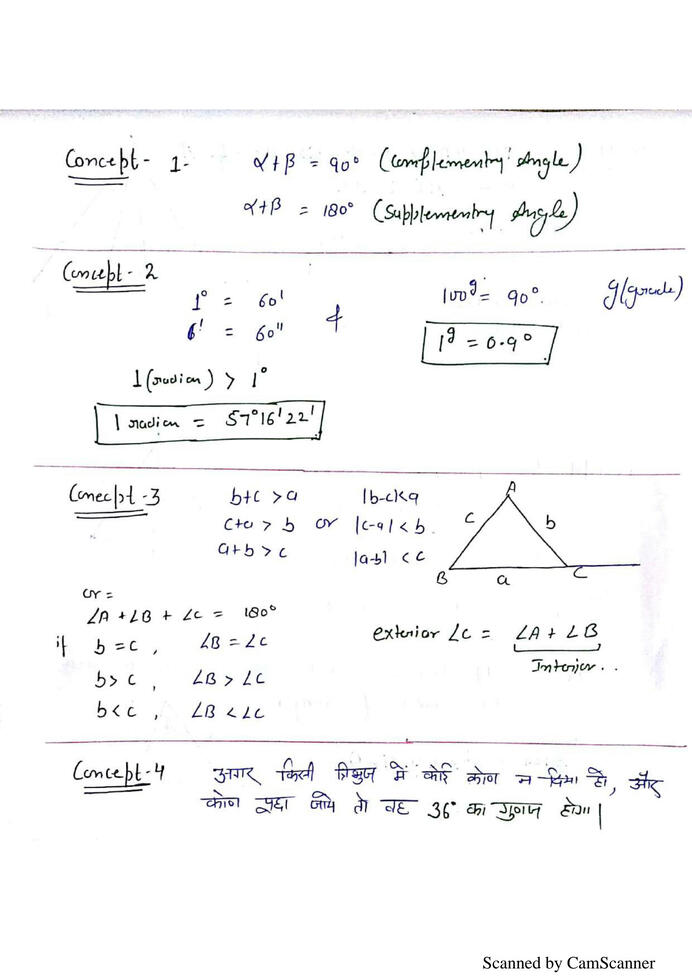 Concept- 1- α+β = 90° (Complementry Angle)
α+β = 180° (Supplementry Angle)
Concept- 2
1° = 60' & 100ᵍ = 90°. g(grade)
6' = 60" 1ᵍ = 0.9°
1(radian) > 1°
1 radian = 57°16'22'
Conecpt-3 b+c >a |b-c|<a A
c+a > b or |c-a| < b. c b
a+b > c |a-b| < c B a C
or =
∠A +∠B + ∠C = 180°
if b = c , ∠B = ∠C exterior ∠C = ∠A + ∠B
b> c , ∠B > ∠C Interior..
b< c , ∠B < ∠C
Concept-4 अगर किसी त्रिभुज में कोई कोण न दिया हो, और
कोण पूछा जाये तो वह 36° का गुणज होगा|
Scanned by CamScanner